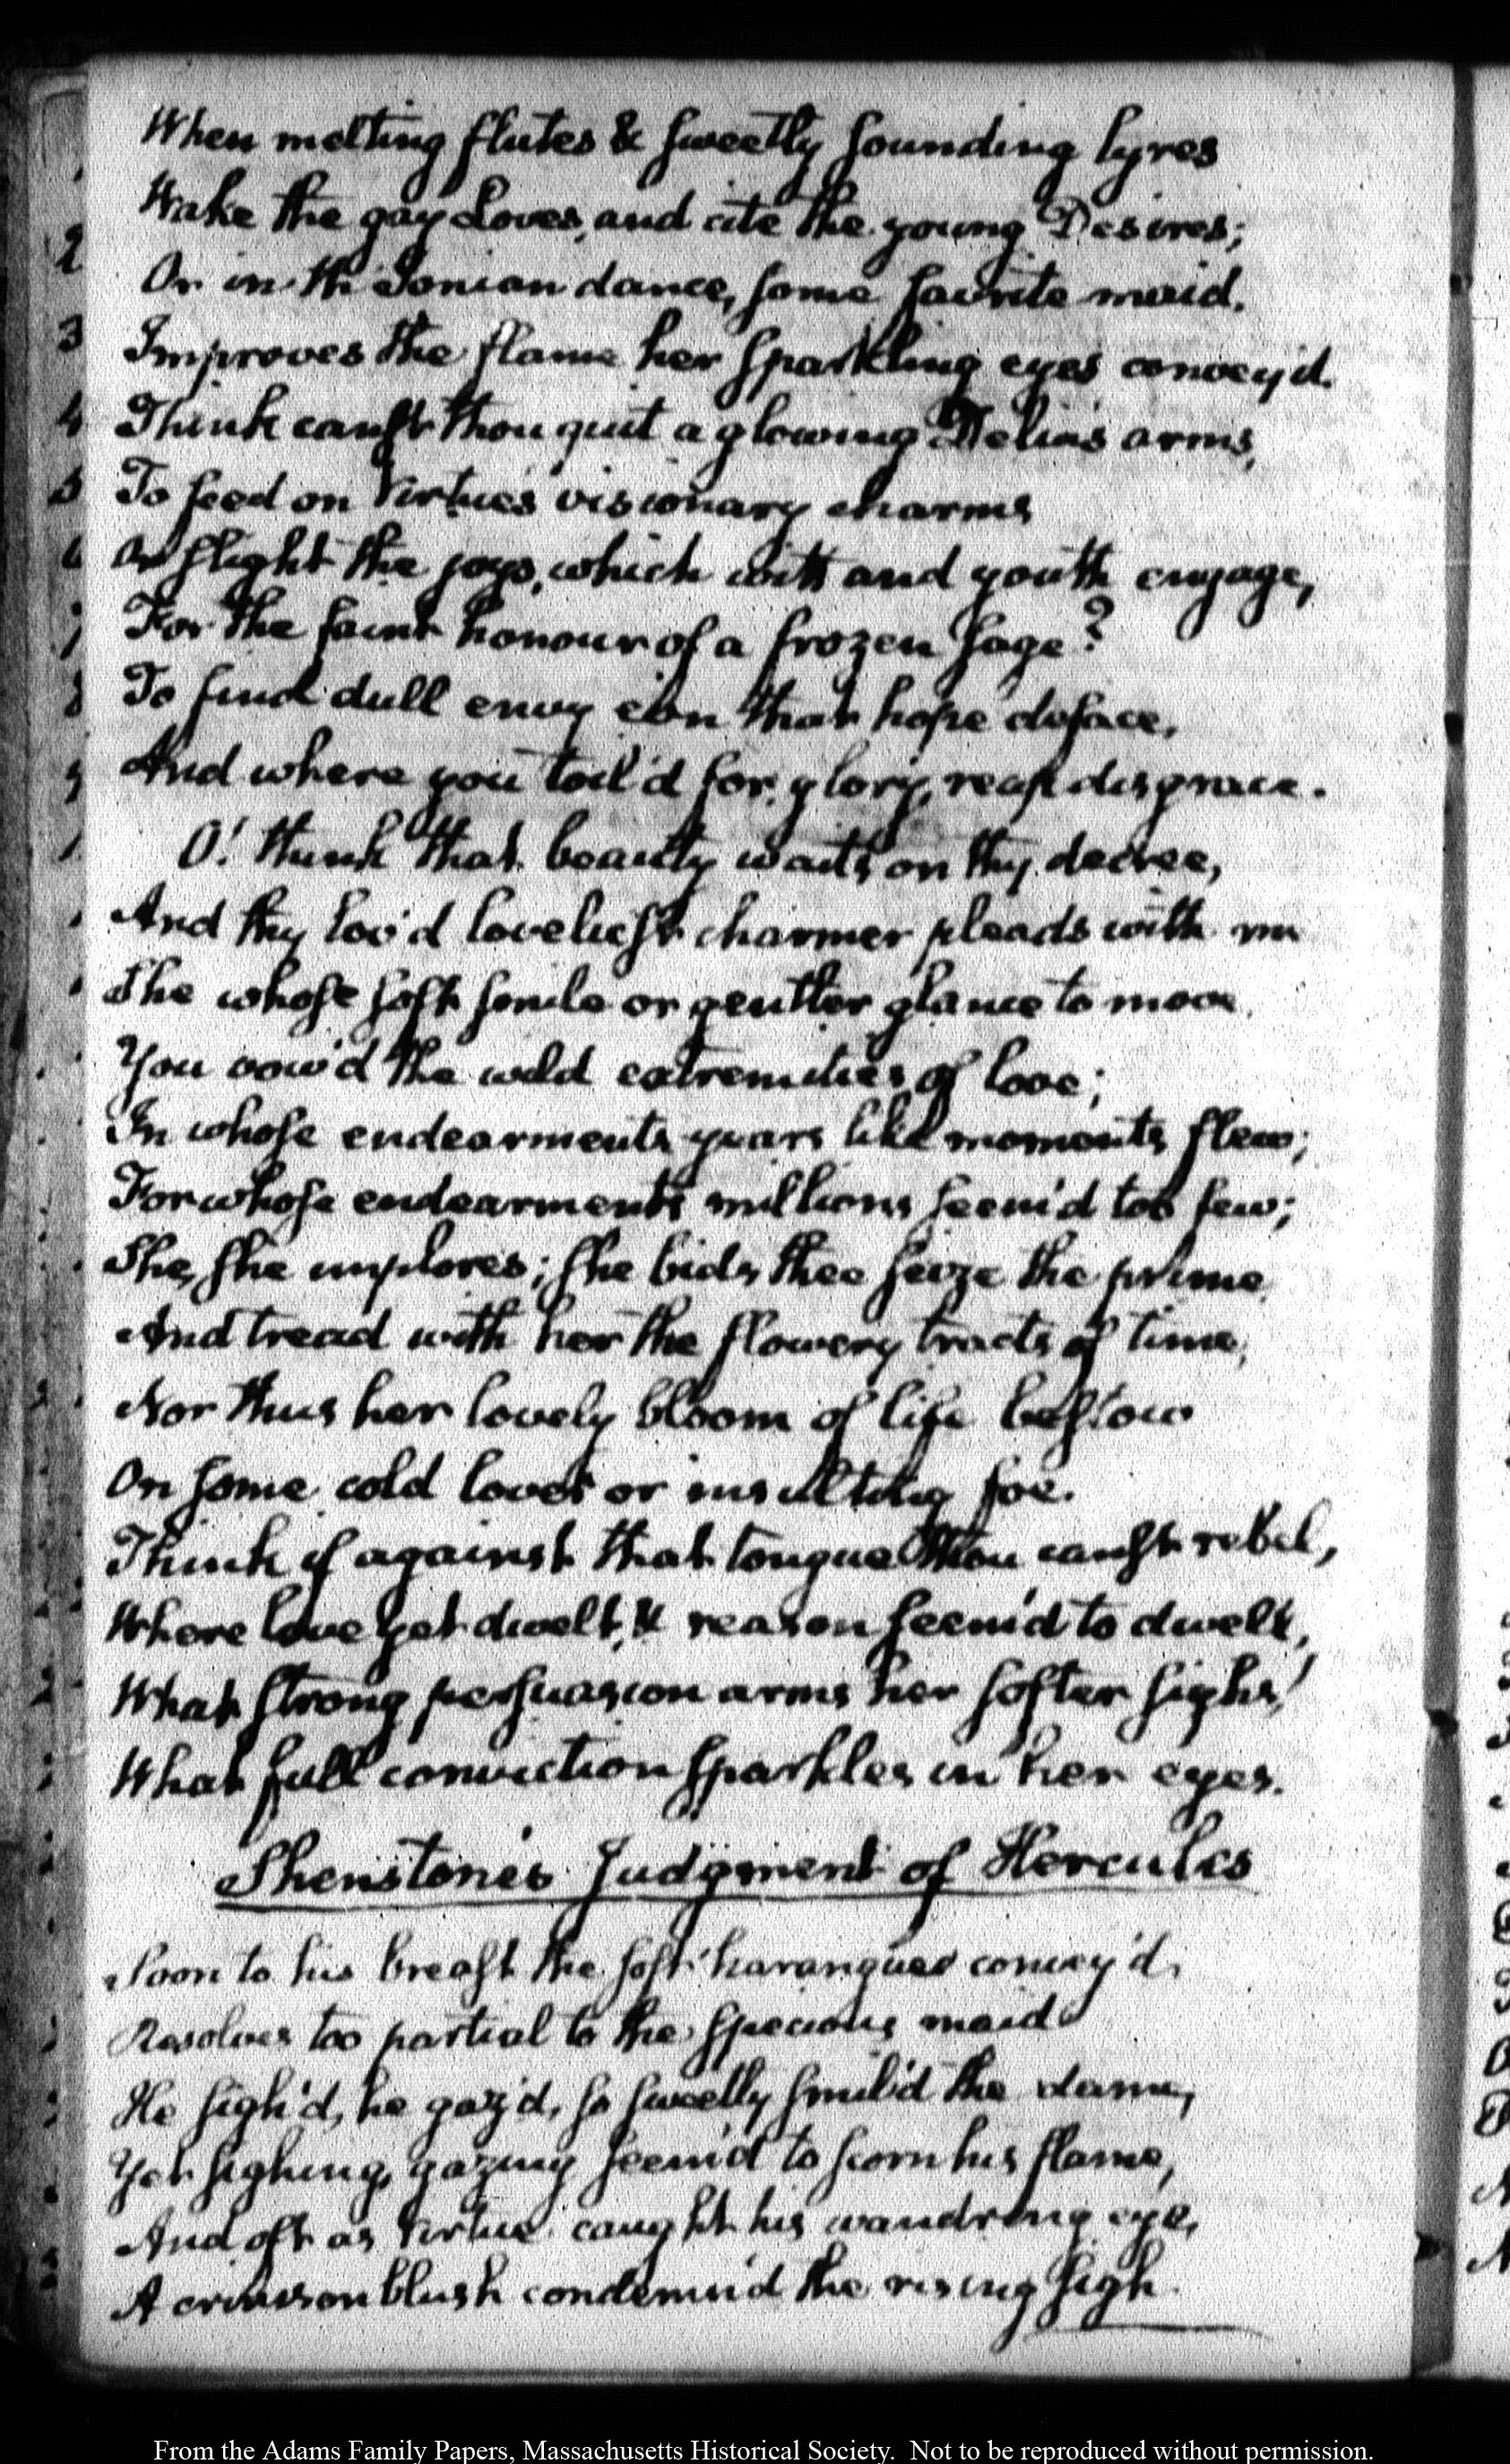 When melting flutes & sweetly sounding lyres
Wake the gay Loves, and cite the young Desires;
2
Or in th' Ionian dance, some favrite maid.
3 Improves the flame her sparkling eyes convey'd.
4 Think canst thou quit a glowing Delia's arms,
5 To feed on Virtue's visionary charms
6 Or slight the joys, which witt and youth engage,
For the faint honour of a frozen sage?
To find dull envy e'en that hope deface,
9 And where you toil'd for glory, reap disgrace.
O! think that beauty waits on thy decree,
And thy lov'd loveliest charmer pleads with me
She whose soft smile or gentler glance to move,
You vow'd the wild extremities of love;
In whose endearments years like moments flew;
For whose endearments millions seem'd too few;
She, she implores; she bids thee seize the prime
And tread with her the flowery tracts of time;
Nor thus her lovely bloom of life bestow
On some cold lover or insulting foe.
Think if against that tongue thou canst rebel,
Where love yet dwelt, & reason seem'd to dwell,
What strong persuasion arms her softer sighs!
What full conviction sparkles in her eyes.
Shenstone's Judgment of Hercules
Soon to his breast the soft harangues convey'd,
Resolves too partial to the specious maid
He sigh'd, he gaz'd, so sweetly smil'd the dame,
Yet sighing, gazing seem'd to scorn his flame,
And oft as Virtue caught his wandring eye,
A crimson blush condemn'd the rising sigh.
From the Adams Family Papers, Massachusetts Historical Society. Not to be reproduced without permission.